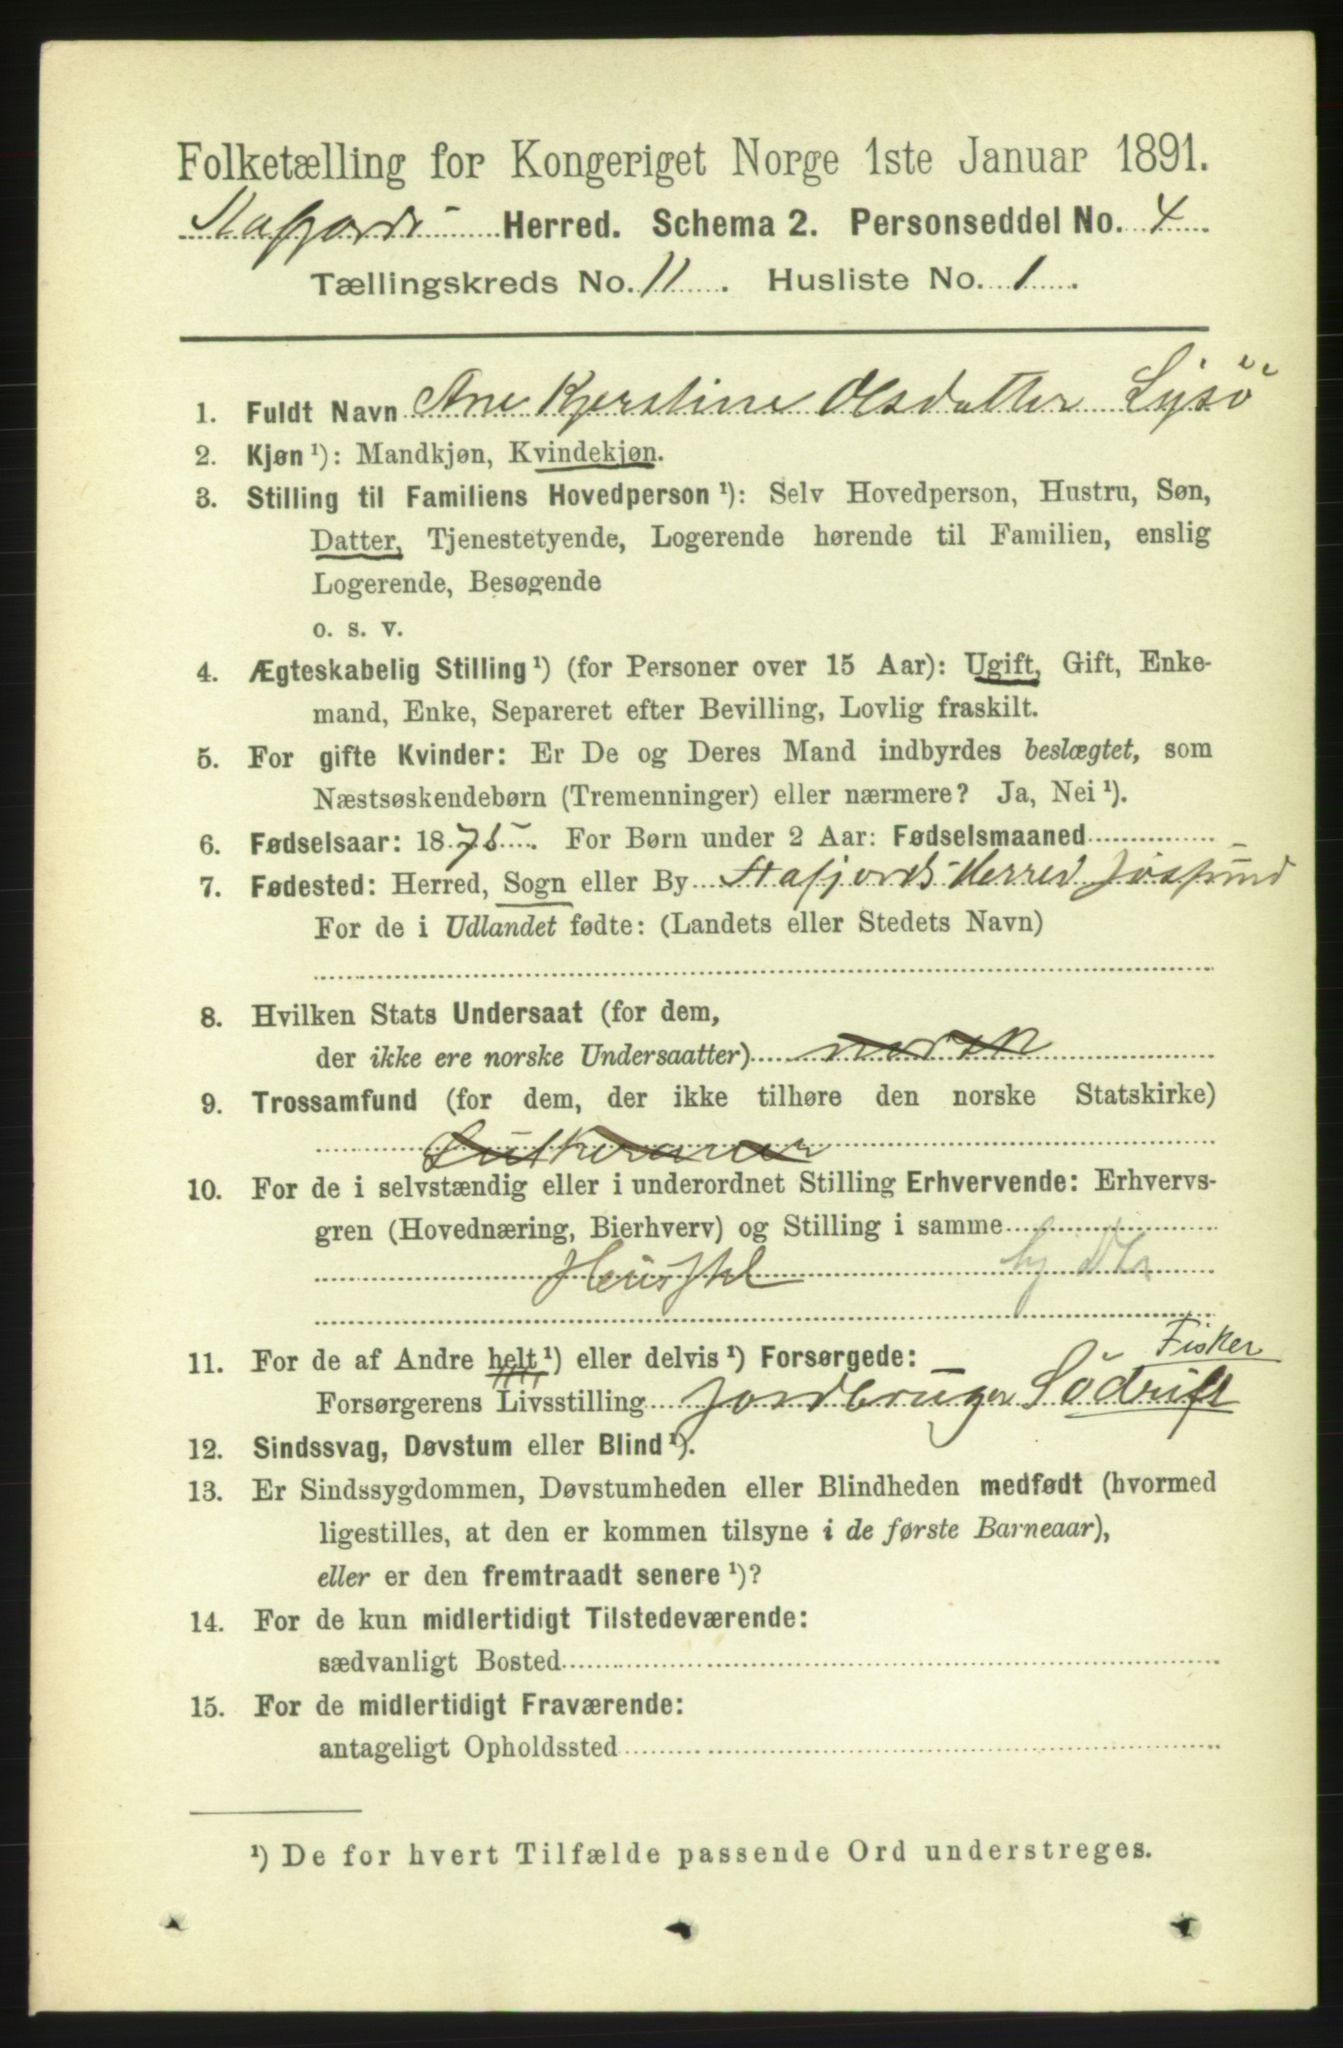 Folketælling for Kongeriget Norge 1ste Januar 1891.
Stafjords Herred. Schema 2. Personseddel No. 4
Tællingskreds No. 11. Husliste No. 1.
1. Fuldt Navn Ane Kjerstine Olsdatter Lysö
2. Kjøn ¹): Mandkjøn, Kvindekjøn.
3. Stilling til Familiens Hovedperson ¹): Selv Hovedperson, Hustru, Søn,
Datter, Tjenestetyende, Logerende hørende til Familien, enslig
Logerende, Besøgende
o. s. v.
4. Ægteskabelig Stilling ¹) (for Personer over 15 Aar): Ugift, Gift, Enke-
mand, Enke, Separeret efter Bevilling, Lovlig fraskilt.
5. For gifte Kvinder: Er De og Deres Mand indbyrdes beslægtet, som
Næstsøskendebørn (Tremenninger) eller nærmere? Ja, Nei ¹).
6. Fødselsaar: 1875. For Børn under 2 Aar: Fødselsmaaned
7. Fødested: Herred, Sogn eller By Stafjords Herred Jøssund
For de i Udlandet fødte: (Landets eller Stedets Navn)
8. Hvilken Stats Undersaat (for dem,
der ikke ere norske Undersaatter) norsk
9. Trossamfund (for dem, der ikke tilhøre den norske Statskirke)
Lutheraner
10. For de i selvstændig eller i underordnet Stilling Erhvervende: Erhvervs-
gren (Hovednæring, Bierhverv) og Stilling i samme
hj dtr
Fisker
11. For de af Andre helt ¹) eller delvis ¹) Forsørgede:
Forsørgerens Livsstilling Jordbruger Södrift
12. Sindssvag, Døvstum eller Blind ¹).
13. Er Sindssygdommen, Døvstumheden eller Blindheden medfødt (hvormed
ligestilles, at den er kommen tilsyne i de første Barneaar),
eller er den fremtraadt senere ¹)?
14. For de kun midlertidigt Tilstedeværende:
sædvanligt Bosted
15. For de midlertidigt Fraværende:
antageligt Opholdssted
¹) De for hvert Tilfælde passende Ord understreges.